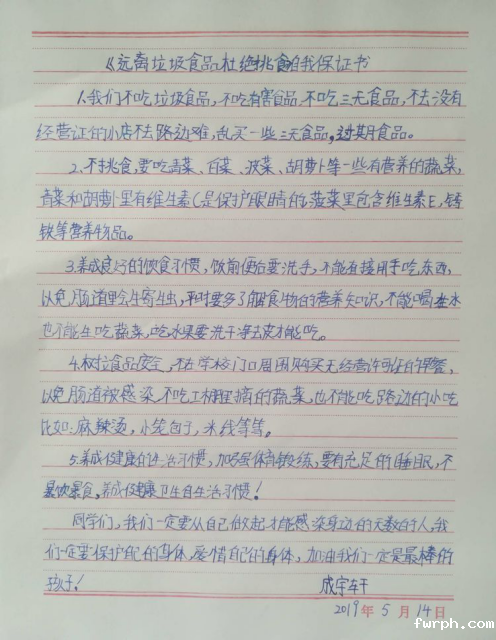 《远离垃圾食品杜绝挑食自我保证书
1.我们不吃垃圾食品,不吃有害食品,不吃三无食品,不去没有
经营证的小店不去路边难,乱买一些三无食品,过期食品。
2、不挑食,要吃青菜、白菜、菠菜、胡萝卜等一些有营养的蔬菜,
青菜和胡萝卜里有维生素C是保护眼睛的,菠菜里包含维生素E,锌
铁等营养物品。
3.养成良好的饮食习惯,饭前便后要洗手,不能直接用手吃东西,
以免肠道里会生寄生虫,平时要多了解食物的营养知识,不能喝生水
也不能生吃蔬菜,吃水果要洗干净去皮才能吃。
4.树立食品安全,不去学校门口周围购买无经营许可证的早餐,
以免肠道被感染,不吃工棚里摘的蔬菜,也不能吃路边的小吃
比如:麻辣烫,小笼包子,米线等等。
5.养成健康的生活习惯,加强体育锻练,要有充足的睡眠,不
暴饮暴食,养成健康卫生的生活习惯!
同学们,我们一定要从自己做起才能感染身边的无数的人,我
们一定要保护自己的身体,爱惜自己的身体,加油我们一定是最棒的
孩子!
成宇轩
2019年5月14日
fwrph.com